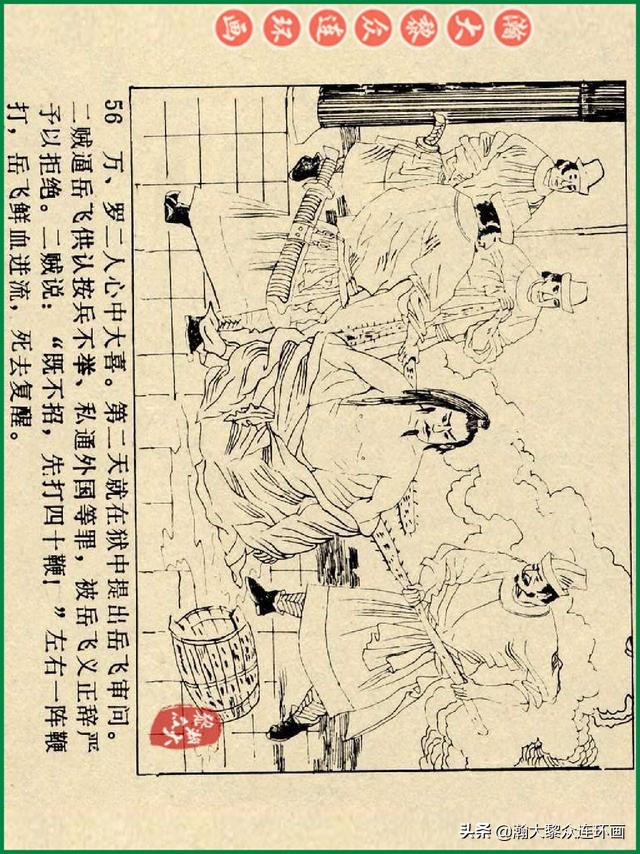 瀚大黎众连环画
56 万、罗二人心中大喜。第二天就在狱中提出岳飞审问。
二贼逼岳飞供认按兵不举、私通外国等罪，被岳飞义正辞严
予以拒绝。二贼说：“既不招，先打四十鞭！”左右一阵鞭
打，岳飞鲜血迸流，死去复醒。
头条 @瀚大黎众连环画